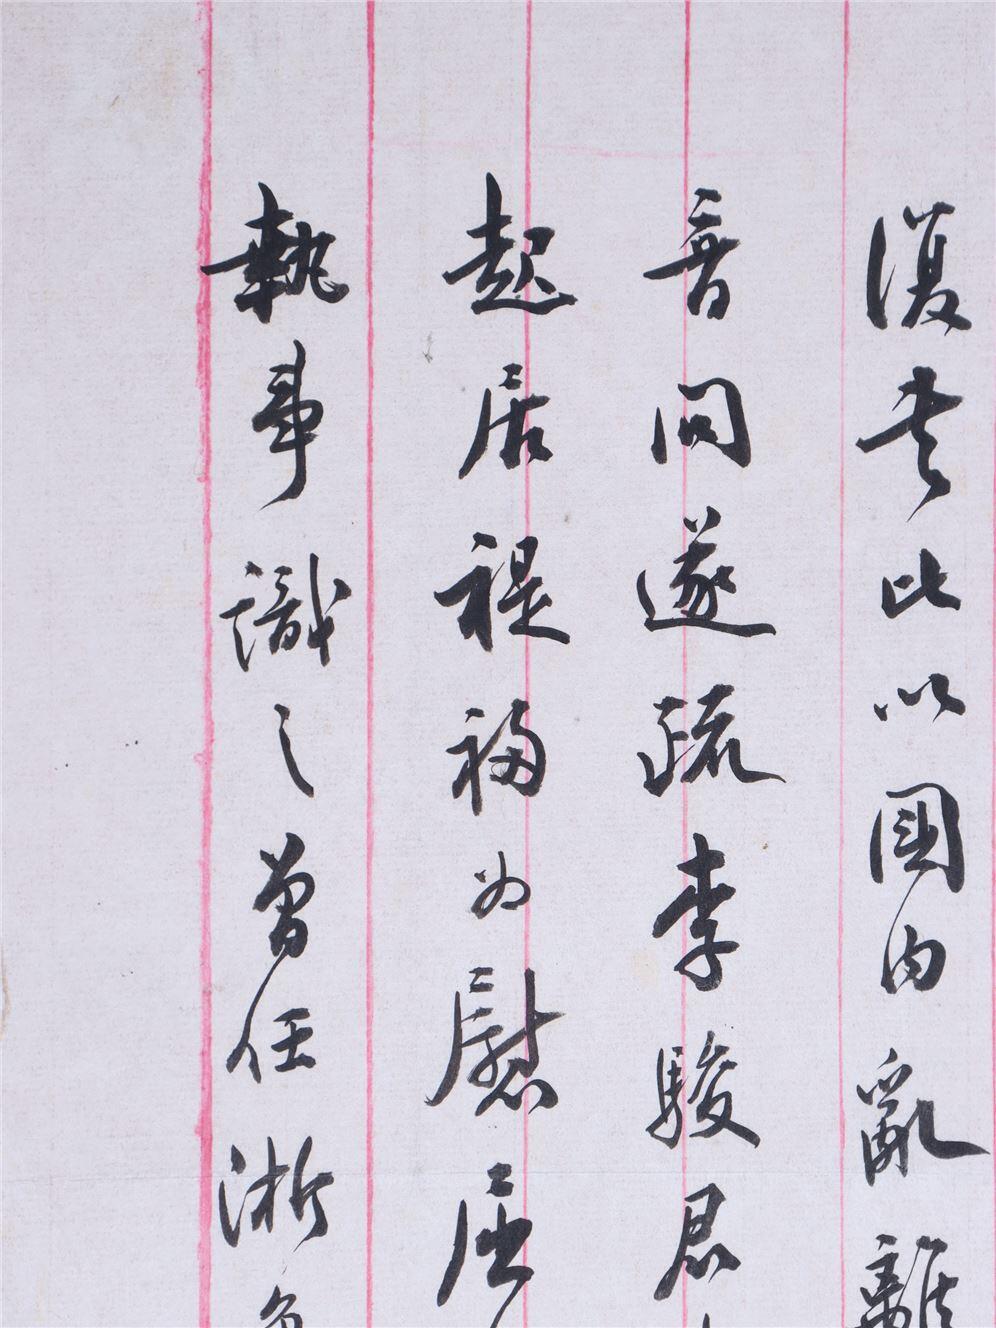 復書比以國内亂離
音問遂疏李駿君
起居禔福為慰
執事識之曾任浙